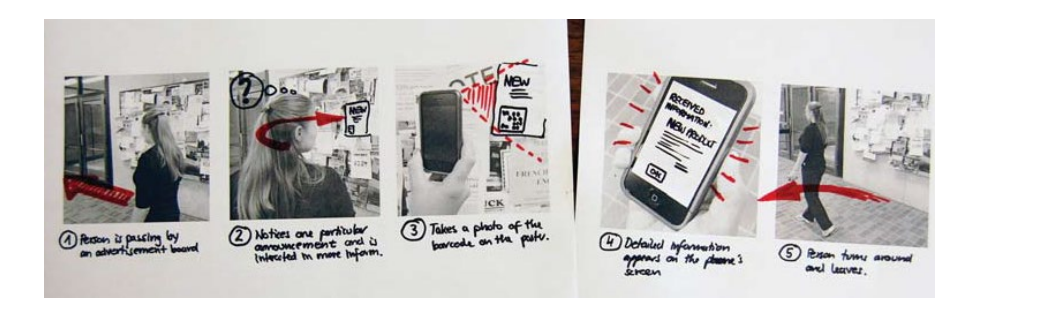 ① Person is passing by
an advertisement board
?
NEW
② Notices one particular
announcement and is
intersted in more inform.
OTE
NEW
FRENCH
UCK
③ Takes a photo of the
barcode on the poster.
RECEIVED
INFORMATION:
NEW PRODUCT
OK
④ Detailed information
appears on the phone's
screen
⑤ Person turns around
and leaves.